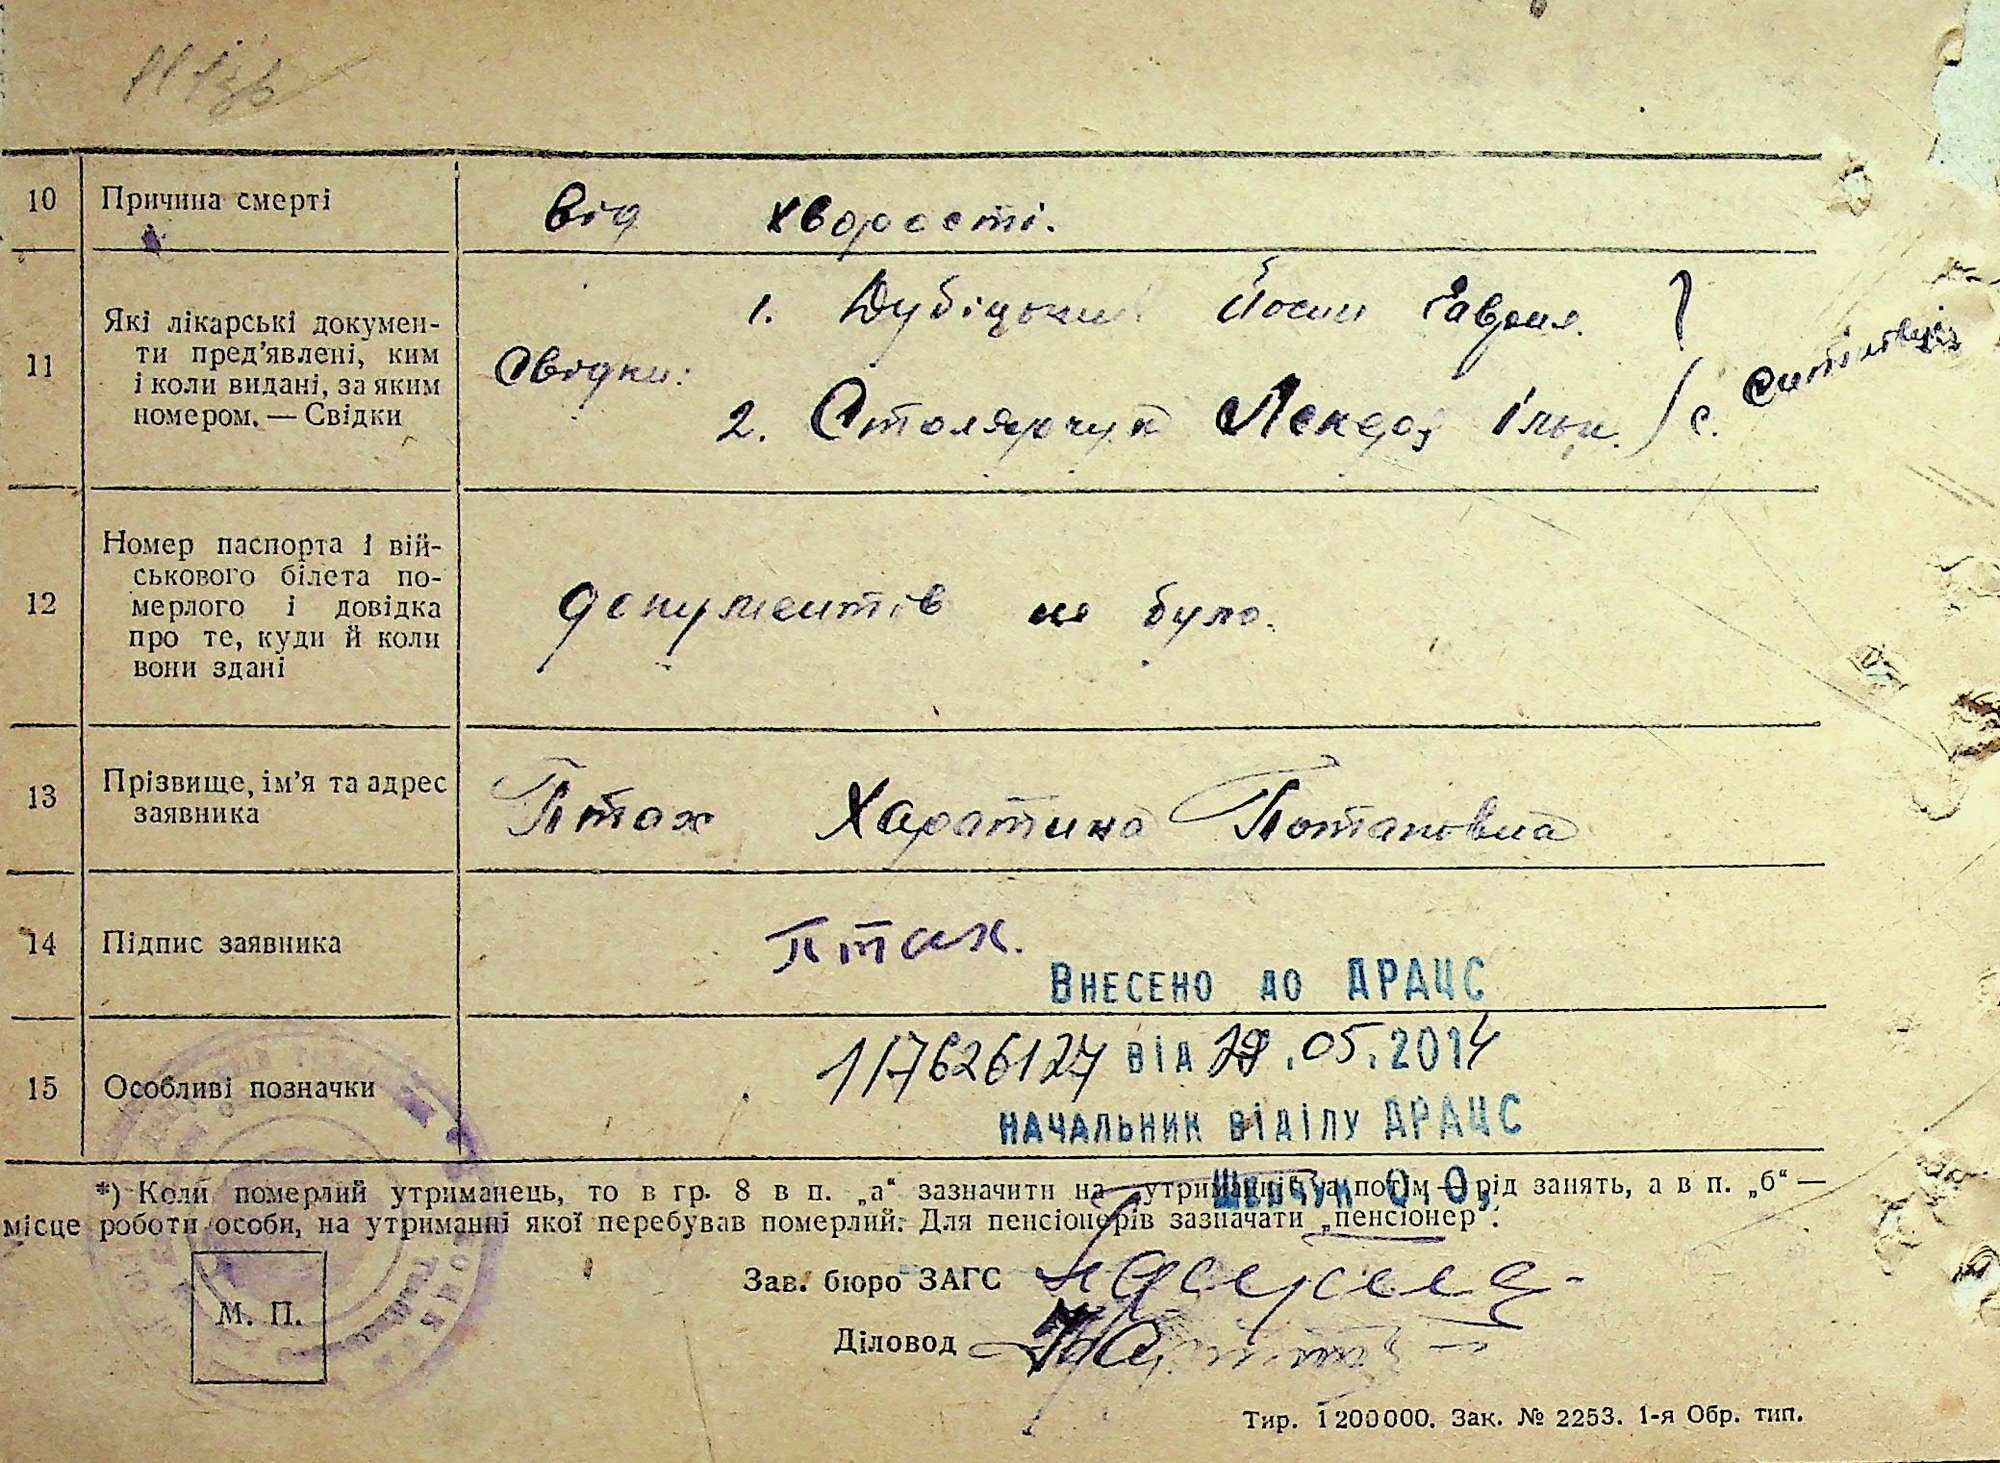 10 Причина смерті від хворості.
11 Які лікарські докумен-
ти пред'явлені, ким
і коли видані, за яким
номером. — Свідки
Свідки:
1. Дубіцький Йосип Гаврил.
2. Столярчук Лекдој Ільк. с.
12 Номер паспорта і вій-
ськового білета по-
мерлого і довідка
про те, куди й коли
вони здані
документів не було.
13 Прізвище, ім'я та адрес
заявника
Птах Харатина Потаповна
14 Підпис заявника Птах.
Внесено до ДРАЦС
15 Особливі позначки 117626127 від .05.2014
начальник відділу ДРАЦС
Шевчук О.О.
*) Коли померлий утриманець, то в гр. 8 в п. „а“ зазначити на утриманні, а потім — рід занять, а в п. „б“ —
місце роботи особи, на утриманні якої перебував померлий. Для пенсіонерів зазначати „пенсіонер“.
Зав. бюро ЗАГС
М. П.
Діловод
Тир. 1200000. Зак. № 2253. 1-я Обр. тип.